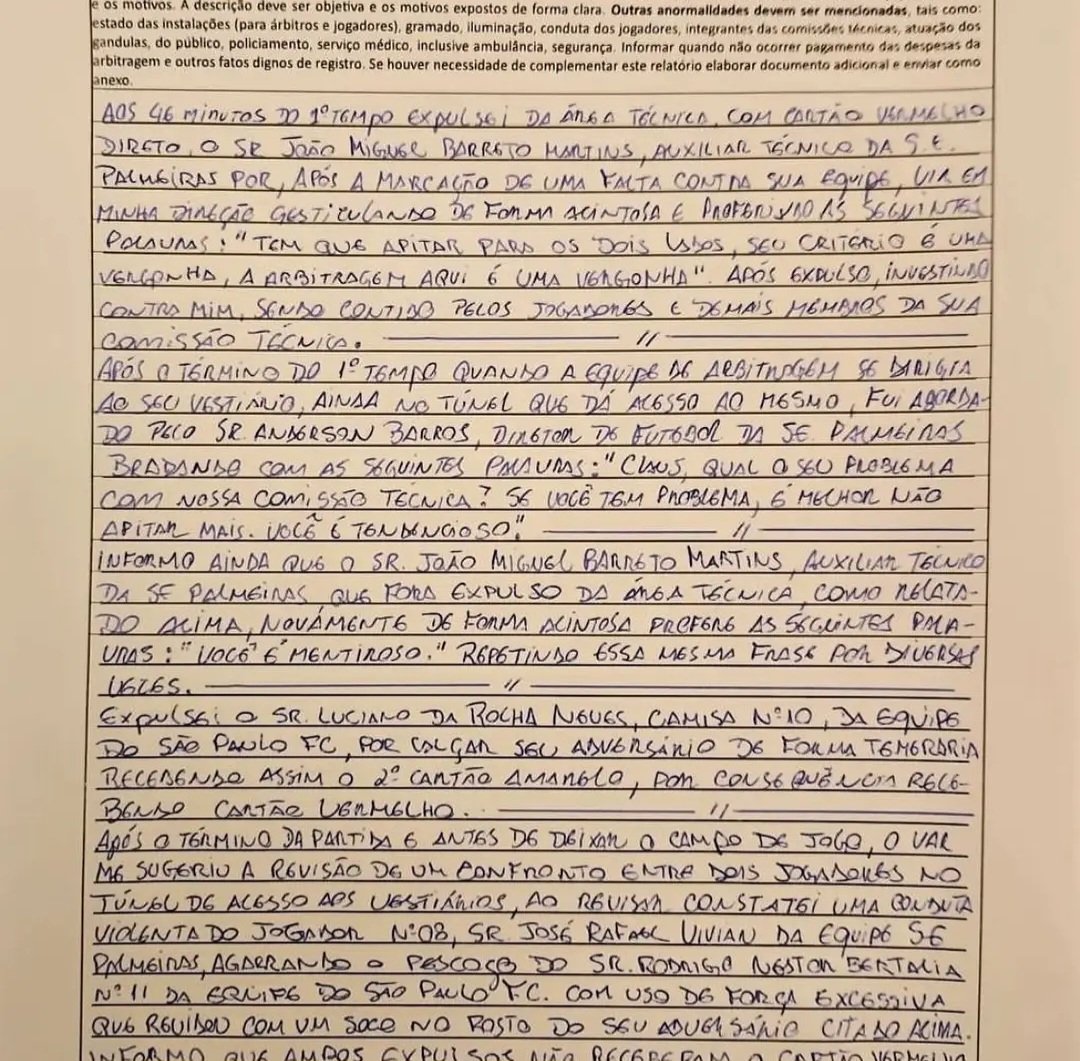 e os motivos. A descrição deve ser objetiva e os motivos expostos de forma clara. Outras anormalidades devem ser mencionadas, tais como:
estado das instalações (para árbitros e jogadores), gramado, iluminação, conduta dos jogadores, integrantes das comissões técnicas, atuação dos
gandulas, do público, policiamento, serviço médico, inclusive ambulância, segurança. Informar quando não ocorrer pagamento das despesas da
arbitragem e outros fatos dignos de registro. Se houver necessidade de complementar este relatório elaborar documento adicional e enviar como
anexo.
AOS 46 MINUTOS DO 1º TEMPO EXPULSEI DA ÁREA TÉCNICA, COM CARTÃO VERMELHO
DIRETO, O SR JOÃO MIGUEL BARRETO MARTINS, AUXILIAR TÉCNICO DA S.E.
PALMEIRAS POR, APÓS A MARCAÇÃO DE UMA FALTA CONTRA SUA EQUIPE, VIR EM
MINHA DIREÇÃO GESTICULANDO DE FORMA ACINTOSA E PROFERINDO AS SEGUINTES
PALAVRAS: "TEM QUE APITAR PARA OS DOIS LADOS, SEU CRITÉRIO É UMA
VERGONHA, A ARBITRAGEM AQUI É UMA VERGONHA". APÓS EXPULSO, INVESTINDO
CONTRA MIM, SENDO CONTIDO PELOS JOGADORES E DEMAIS MEMBROS DA SUA
COMISSÃO TÉCNICA. //
APÓS O TÉRMINO DO 1º TEMPO QUANDO A EQUIPE DE ARBITRAGEM SE DIRIGIA
AO SEU VESTIÁRIO, AINDA NO TÚNEL QUE DÁ ACESSO AO MESMO, FUI ABORDA-
DO PELO SR. ANDERSON BARROS, DIRETOR DE FUTEBOL DA SE. PALMEIRAS
BRADANDO COM AS SEGUINTES PALAVRAS: "CLAUS, QUAL O SEU PROBLEMA
COM NOSSA COMISSÃO TÉCNICA? SE VOCÊ TEM PROBLEMA, É MELHOR NÃO
APITAR MAIS. VOCÊ É TENDENCIOSO". //
INFORMO AINDA QUE O SR. JOÃO MIGUEL BARRETO MARTINS, AUXILIAR TÉCNICO
DA SE PALMEIRAS, QUE FORA EXPULSO DA ÁREA TÉCNICA, COMO RELATA-
DO ACIMA, NOVAMENTE DE FORMA ACINTOSA PREFERE AS SEGUINTES PALA-
VRAS: "VOCÊ É MENTIROSO." REPETINDO ESSA MESMA FRASE POR DIVERSAS
VEZES. //
EXPULSEI O SR. LUCIANO DA ROCHA NEVES, CAMISA Nº 10, DA EQUIPE
DO SÃO PAULO FC, POR CALÇAR SEU ADVERSÁRIO DE FORMA TEMERÁRIA
RECEBENDO ASSIM O 2º CARTÃO AMARELO, POR CONSEQUÊNCIA RECE-
BENDO CARTÃO VERMELHO. //
APÓS O TÉRMINO DA PARTIDA E ANTES DE DEIXAR O CAMPO DE JOGO, O VAR
ME SUGERIU A REVISÃO DE UM CONFRONTO ENTRE DOIS JOGADORES NO
TÚNEL DE ACESSO AOS VESTIÁRIOS, AO REVISAR CONSTATEI UMA CONDUTA
VIOLENTA DO JOGADOR Nº 08, SR. JOSÉ RAFAEL VIVIAN DA EQUIPE SE
PALMEIRAS, AGARRANDO O PESCOÇO DO SR. RODRIGO NESTOR BERTALIA
Nº 11 DA EQUIPE DO SÃO PAULO F.C. COM USO DE FORÇA EXCESSIVA
QUE REVIDOU COM UM SOCO NO ROSTO DO SEU ADVERSÁRIO CITADO ACIMA.
INFORMO QUE AMBOS EXPULSOS NÃO RECEBERAM O CARTÃO VERMELHO